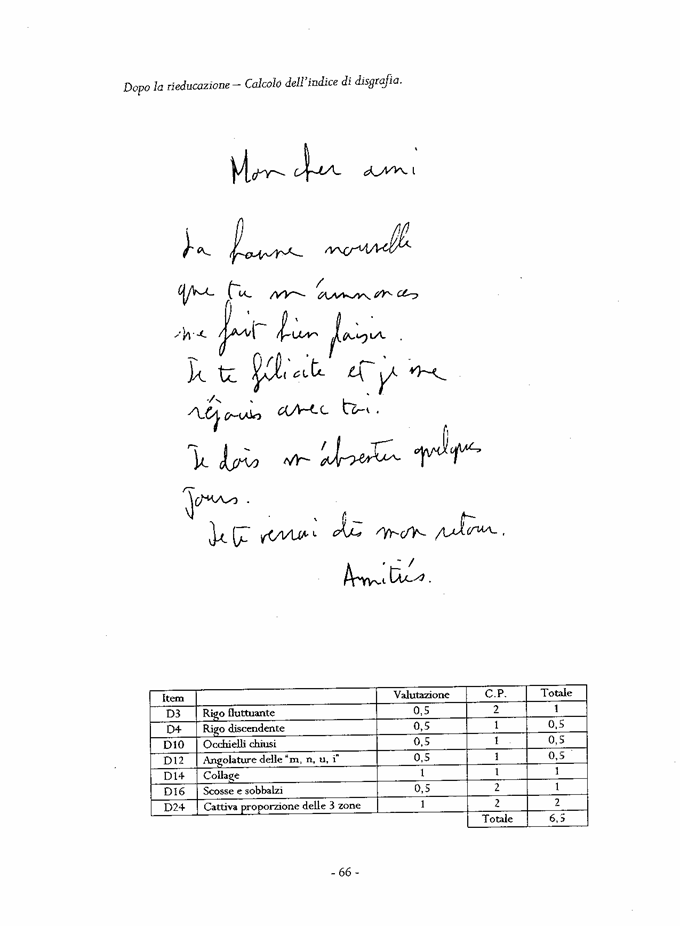 Dopo la rieducazione – Calcolo dell'indice di disgrafia.
Mon cher ami
La bonne nouvelle
que tu m'annonces
me fait bien plaisir.
Je te félicite et je me
réjouis avec toi.
Je dois m'absenter quelques
jours.
Je te verrai dès mon retour.
Amitiés.
Item Valutazione C.P. Totale
D3 Rigo fluttuante 0,5 2 1
D4 Rigo discendente 0,5 1 0,5
D10 Occhielli chiusi 0,5 1 0,5
D12 Angolature delle "m, n, u, i" 0,5 1 0,5
D14 Collage 1 1 1
D16 Scosse e sobbalzi 0,5 2 1
D24 Cattiva proporzione delle 3 zone 1 2 2
Totale 6,5
- 66 -